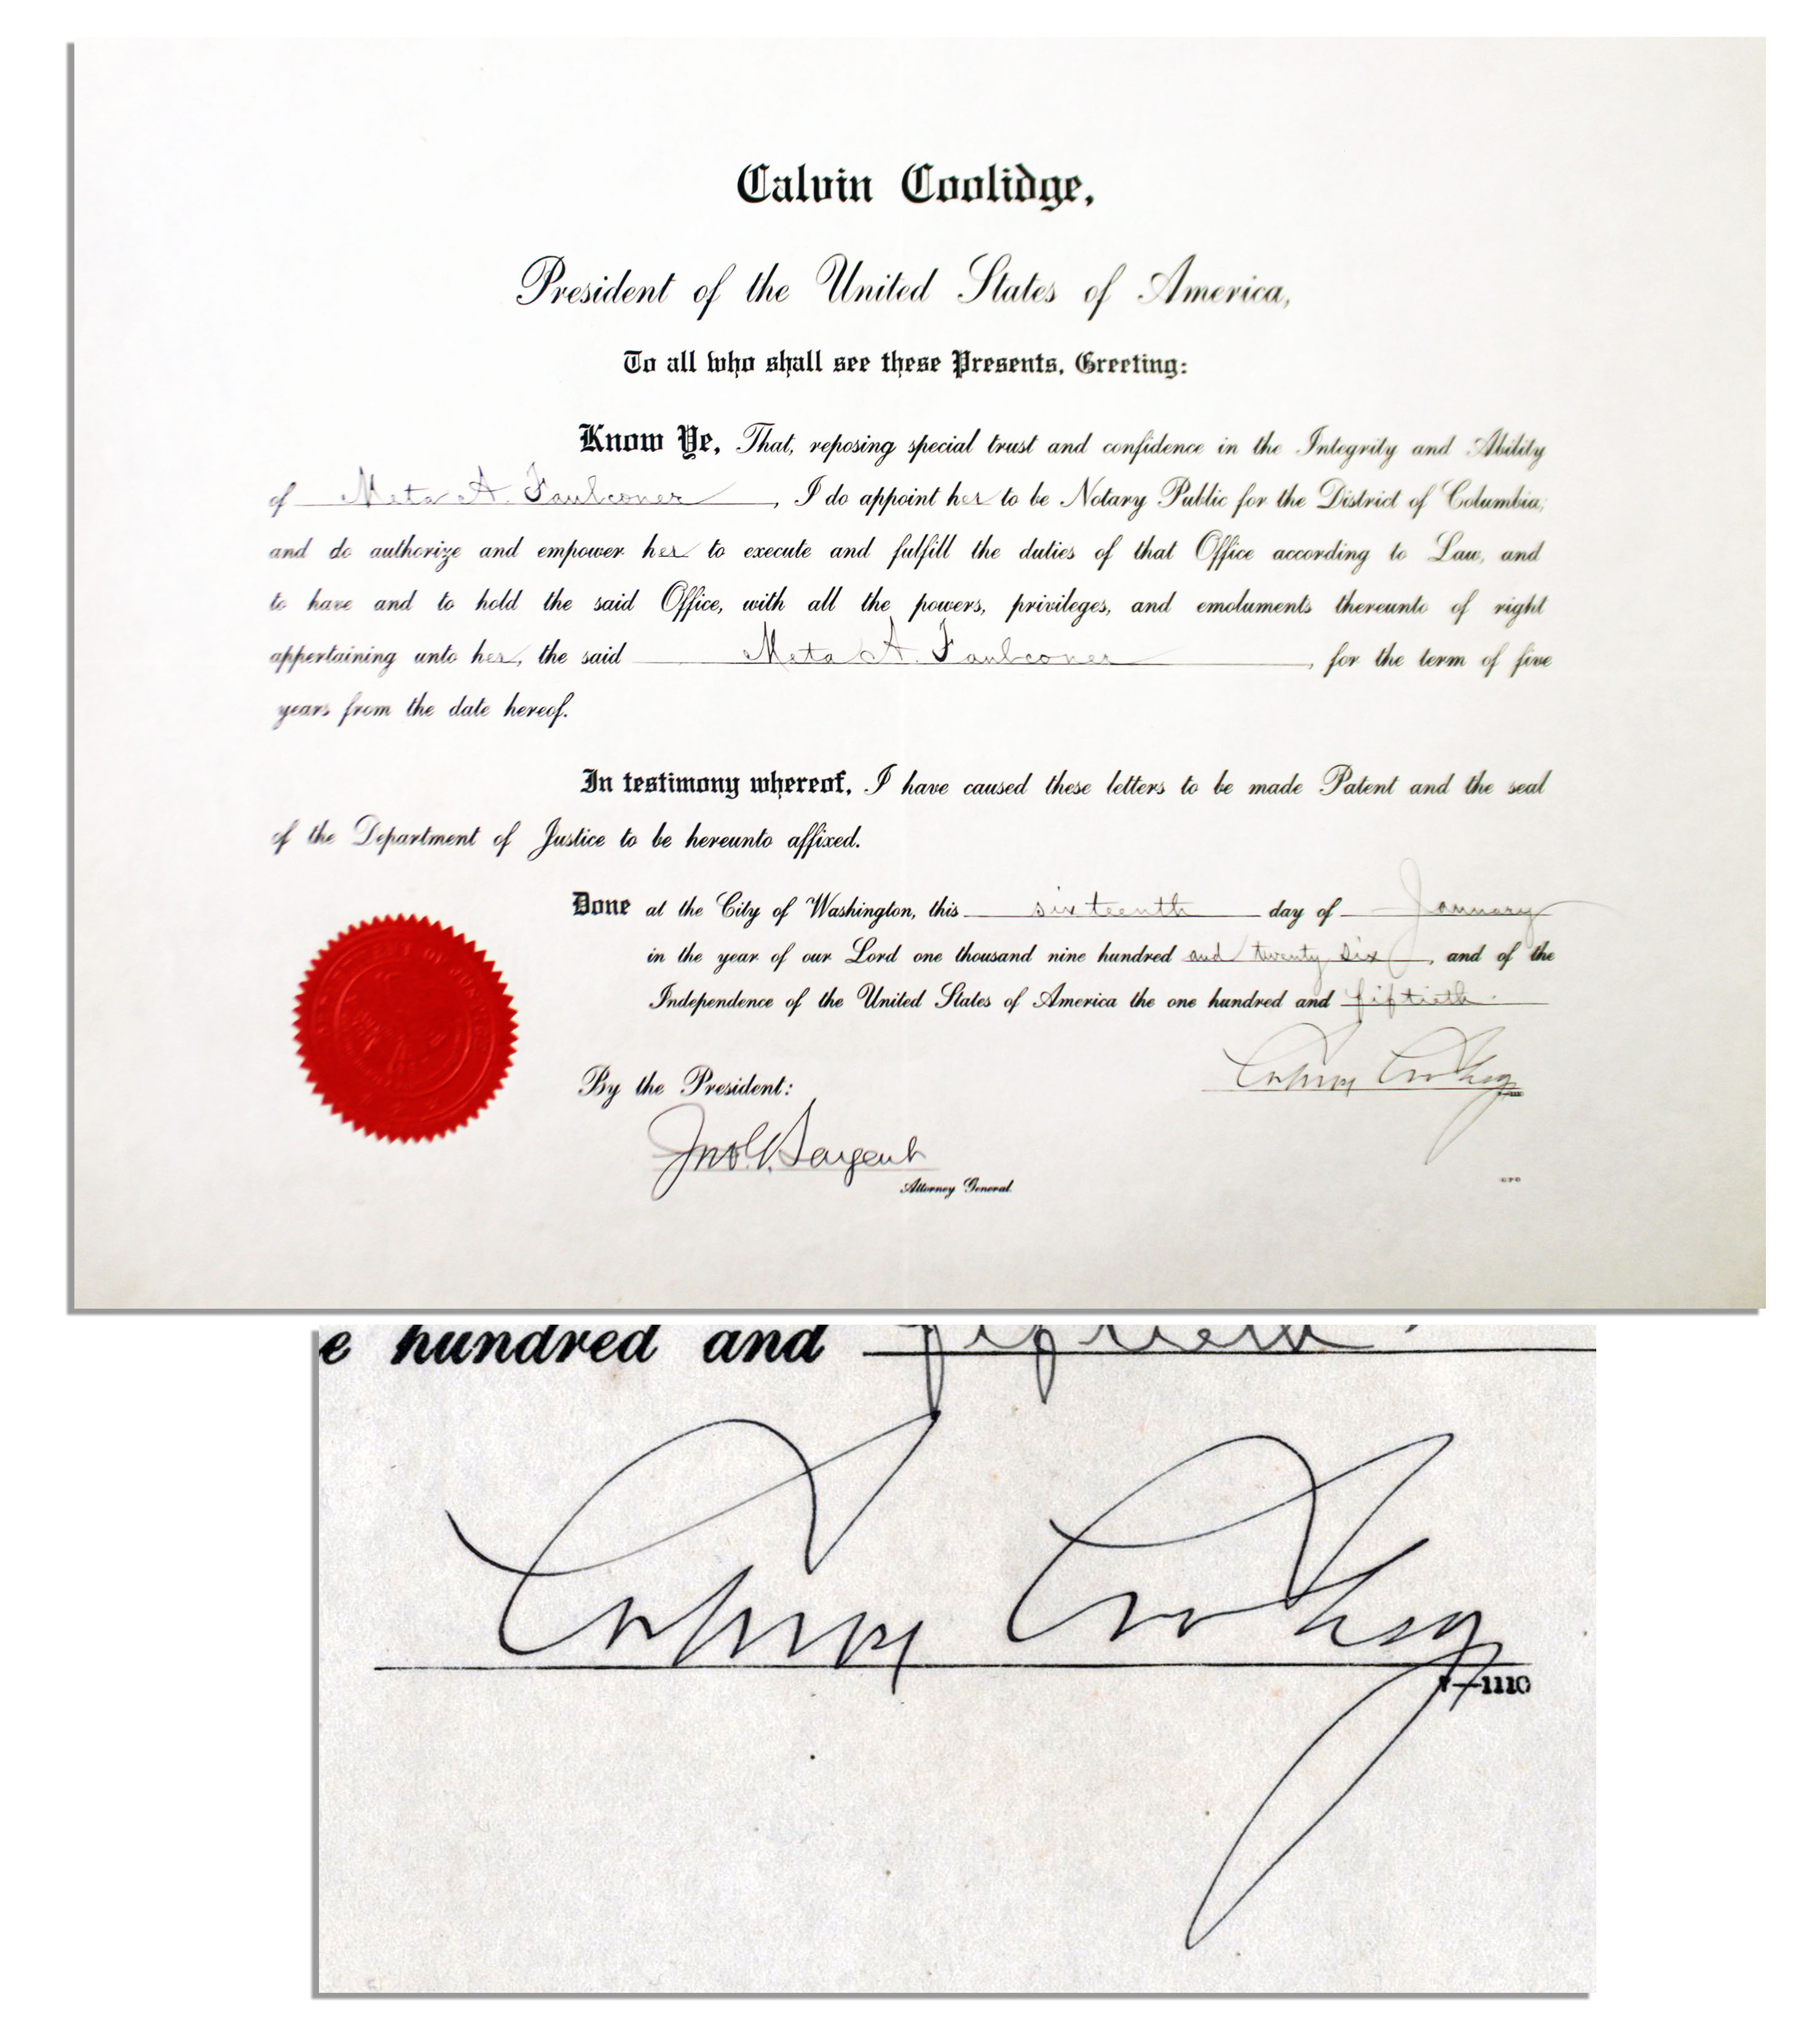 Calvin Coolidge,
President of the United States of America,
To all who shall see these Presents, Greeting:
Know Ye, That, reposing special trust and confidence in the Integrity and Ability
of Meta A. Faulconer, I do appoint her to be Notary Public for the District of Columbia,
and do authorize and empower her to execute and fulfill the duties of that Office according to Law, and
to have and to hold the said Office, with all the powers, privileges, and emoluments thereunto of right
appertaining unto her, the said Meta A. Faulconer, for the term of five
years from the date hereof.
In testimony whereof, I have caused these letters to be made Patent and the seal
of the Department of Justice to be hereunto affixed.
Done at the City of Washington, this sixteenth day of January
in the year of our Lord one thousand nine hundred and twenty six, and of the
Independence of the United States of America the one hundred and fiftieth.
Calvin Coolidge
By the President:
Jno. G. Sargent
Attorney General.
GPO
e hundred and fiftieth.
Calvin Coolidge
—1110